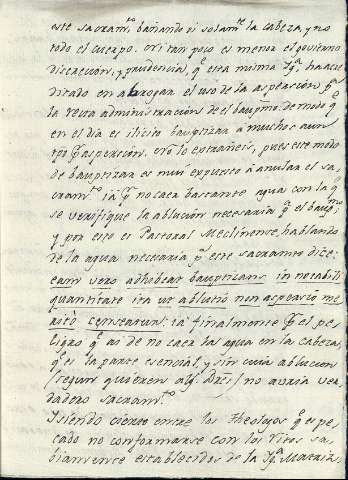 este sacram.to bañando si solam.te la cabeza, y no
todo el cuerpo. Ni tan poco es menor el govierno
discrecion, y prudencia, q.e esta misma Yg.a ha acre
ditado en abrogar el uso de la aspersion p.a
la recta administracion de el baup.mo de modo q.e
en el dia es ilicito bauptizar a muchos a un
tpo p.r aspercion. No lo extrañeis, pues este modo
de bauptizar es mui expuesto a anular el sa
cram.to ia p.r no caer bastante agua con la q.e
se verifique la ablucion necesaria p.a el baup.mo;
y por esto el Pastoral Meclinense, hablando
de la agua necesaria p.a este sacramento dice:
eam vero adhibeat bauptizans in notabili
quantitate ita ut ablutio non aspersio me
rito censeatur: ia finalmente p.r el pe
ligro q.e ai de no caer las agua en la cabeza,
q.e es la parte esencial, y sin cuia ablucion
(segun quieren alg.s DD.es) no auria ver
dadero sacram.to
Y siendo cierto entre los Theologos q.e es pe
cado no conformarse con los ritos sa
biamente establecidos de la Yg.a Matriz,